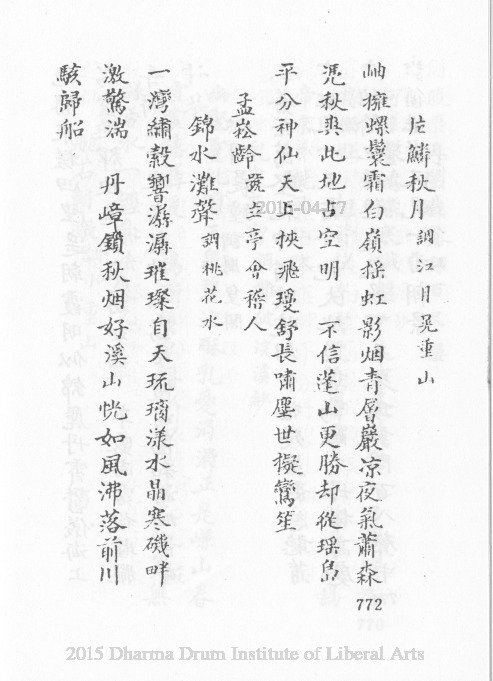 丘鱗秋月 調江月晃重山
岫擁螺鬟霜白嶺搖虹影烟青層巖凉夜氣蕭森
憑秋爽此地占空明 不信蓬山更勝却從瑶島
平分神仙天上挾飛瓊舒長嘯塵世擬鸞笙
孟崧齡 號立亭會稽人
錦水灘聲 調桃花水
一灣繡縠響潺潺璀璨自天琉璃漾水晶寒磯畔
激驚湍 丹嶂鎖秋烟好溪山恍如風沸落前川
駭歸船
772
2015-04-17
2015 Dharma Drum Institute of Liberal Arts